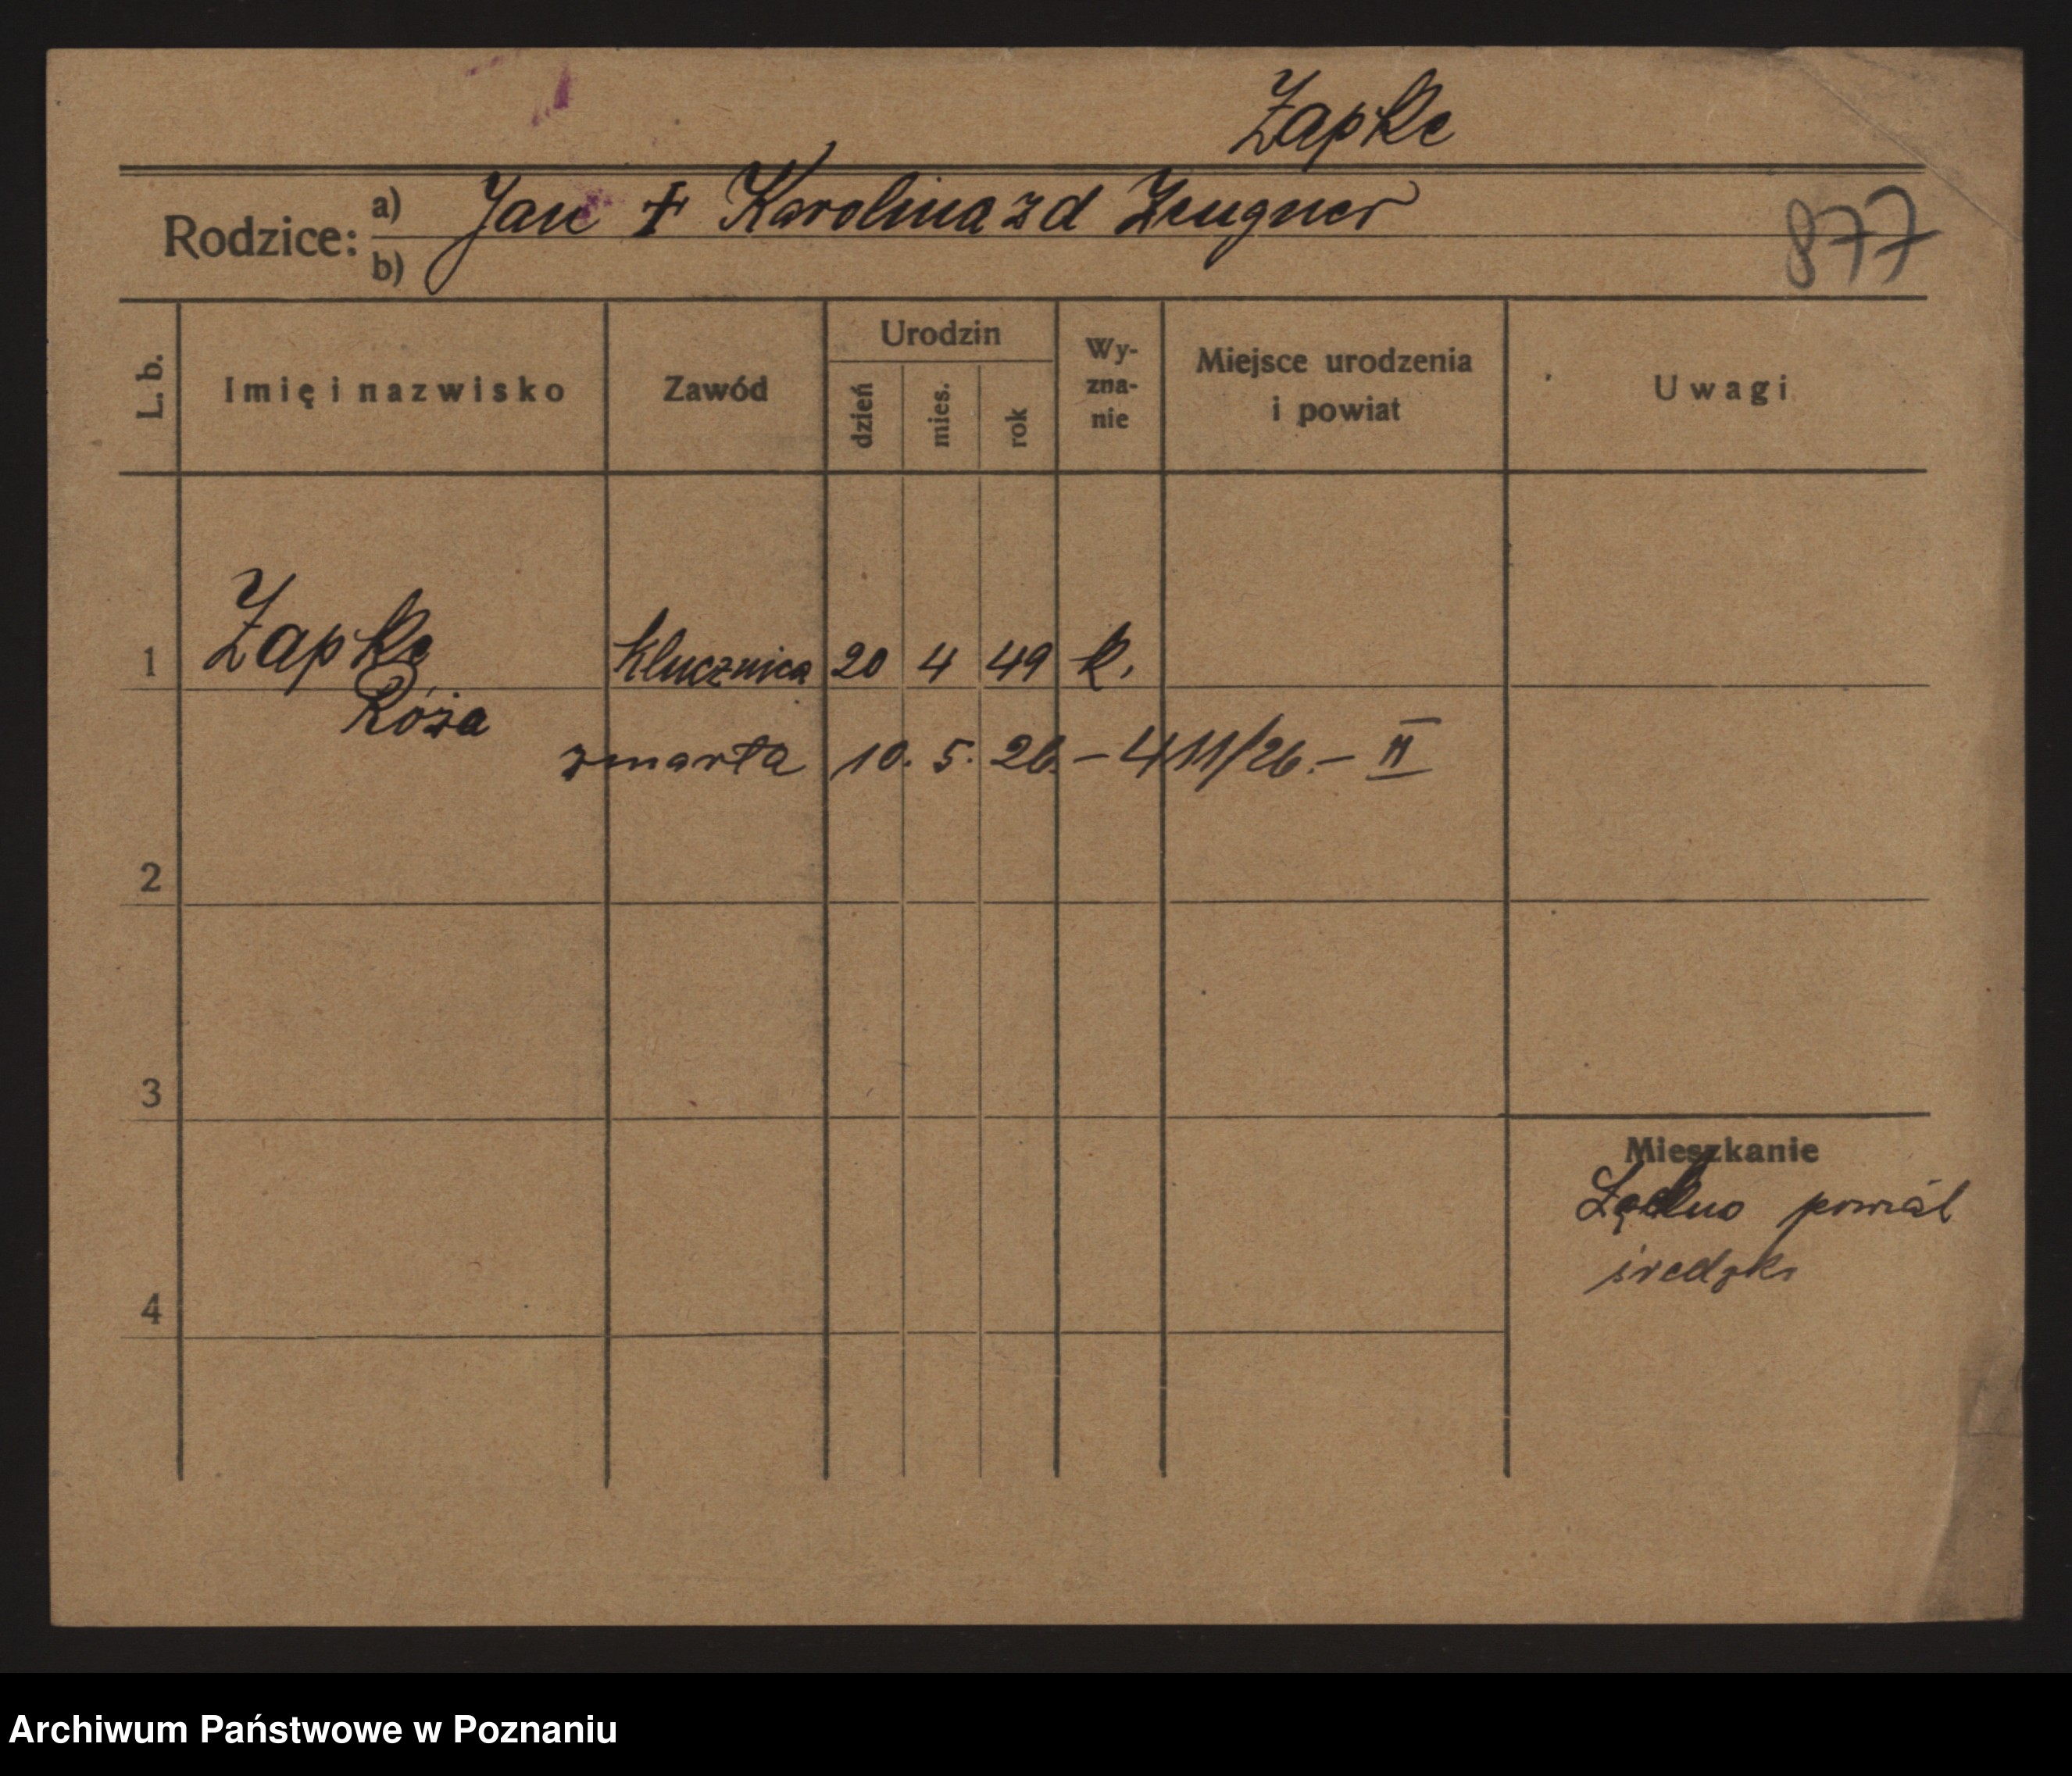 Zapke
Rodzice: a) Jan + Karolina z d Zeugner
b)
877
L. b.
Imię i nazwisko
Zawód
Urodzin
dzień
mies.
rok
Wy-
zna-
nie
Miejsce urodzenia
i powiat
Uwagi
1 Zapke klucznica 20 4 49 k.
Róża
zmarła 10. 5. 26. – 411/26. – II
2
3
Mieszkanie
powiat
średzki
4
Archiwum Państwowe w Poznaniu